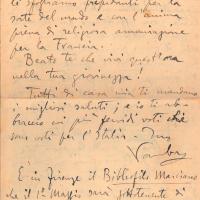 le sofferenze preparanti per la
sorte del mondo e con l'anima
piena di religiosa ammirazione
per la Francia.
Beato te che vivi quest'ora
nella tua giovinezza!
Tutti di casa mia ti mandano
i migliori saluti; ed io ti ab-
braccio coi più fervidi voti che
sono voti per l'Italia. Tuo
È in Firenze il Bibliofilo Marciano
che il 1º Maggio sarà sottotenente di